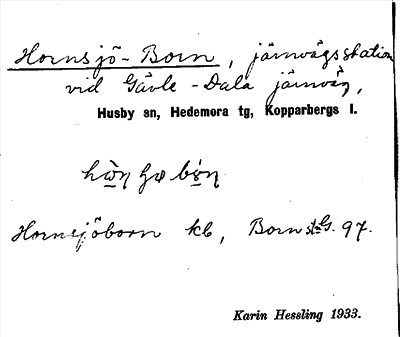 Hornsjö-Born, järnvägsstation
vid Gävle-Dala järnväg,
Husby sn, Hedemora tg, Kopparbergs l.
Hornsjöborn kb, Born stG. 97.
Karin Hessling 1933.